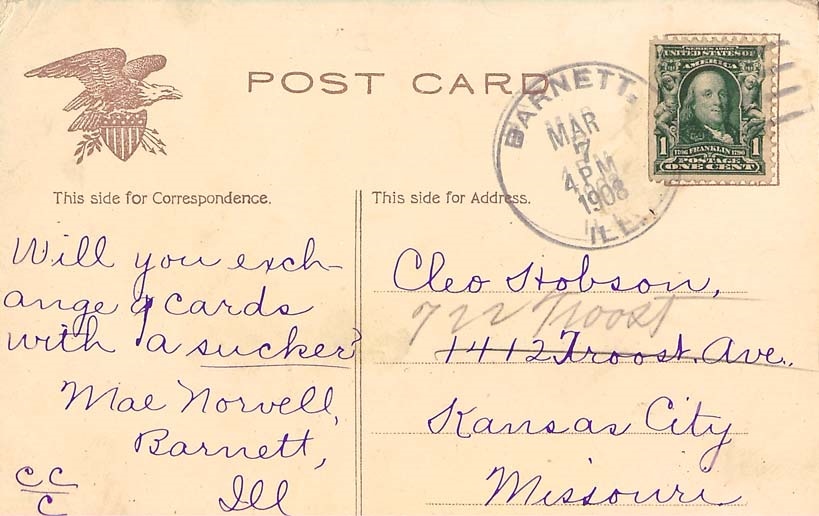 POST CARD
BARNETT,
MAR
7
4 PM
1908
ILL.
SERIES 1902
UNITED STATES OF
AMERICA
1 1
FRANKLIN
POSTAGE
ONE CENT
This side for Correspondence.
Will you exch-
ange cards
with a sucker?
Mae Norvell,
Barnett,
Ill
CC
C
This side for Address.
Cleo Hobson,
722 Troost
1412 Troost. Ave.,
Kansas City
Missouri.